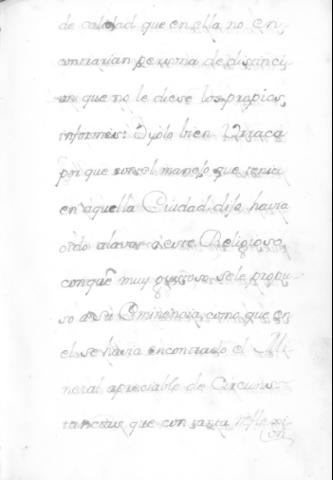 de calidad que en ella no en
contrarian persona de distinci
on que no le diese los propios
informes: Oyólo bien Urraca
por que con el manejo que tenia
en aquella Ciudad dijo havia
oido alavar a este Religioso,
con que muy gustoso se le propu
so a su Eminencia, como que en
el se havia encontrado el Mi
neral apreciable de Circuns
tancias que con sana reflexi
on